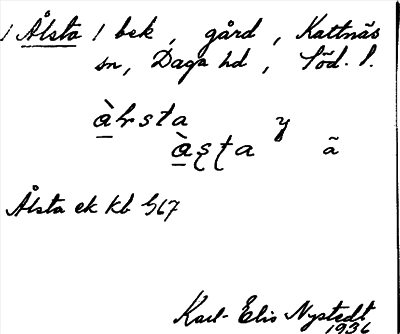 / Ålsta / bek , gård , Kattnäs
sn, Daga hd , Söd. l.
àlsta y
àʂʈa ã
Ålsta ek kb 567
Karl-Elis Nystedt
1936